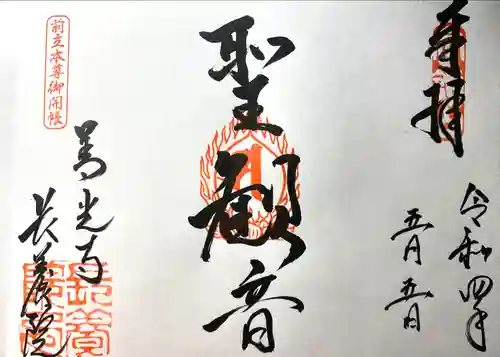 奉拝
令和四年
五月五日
聖観音
前立本尊御開帳
善光寺
長養院